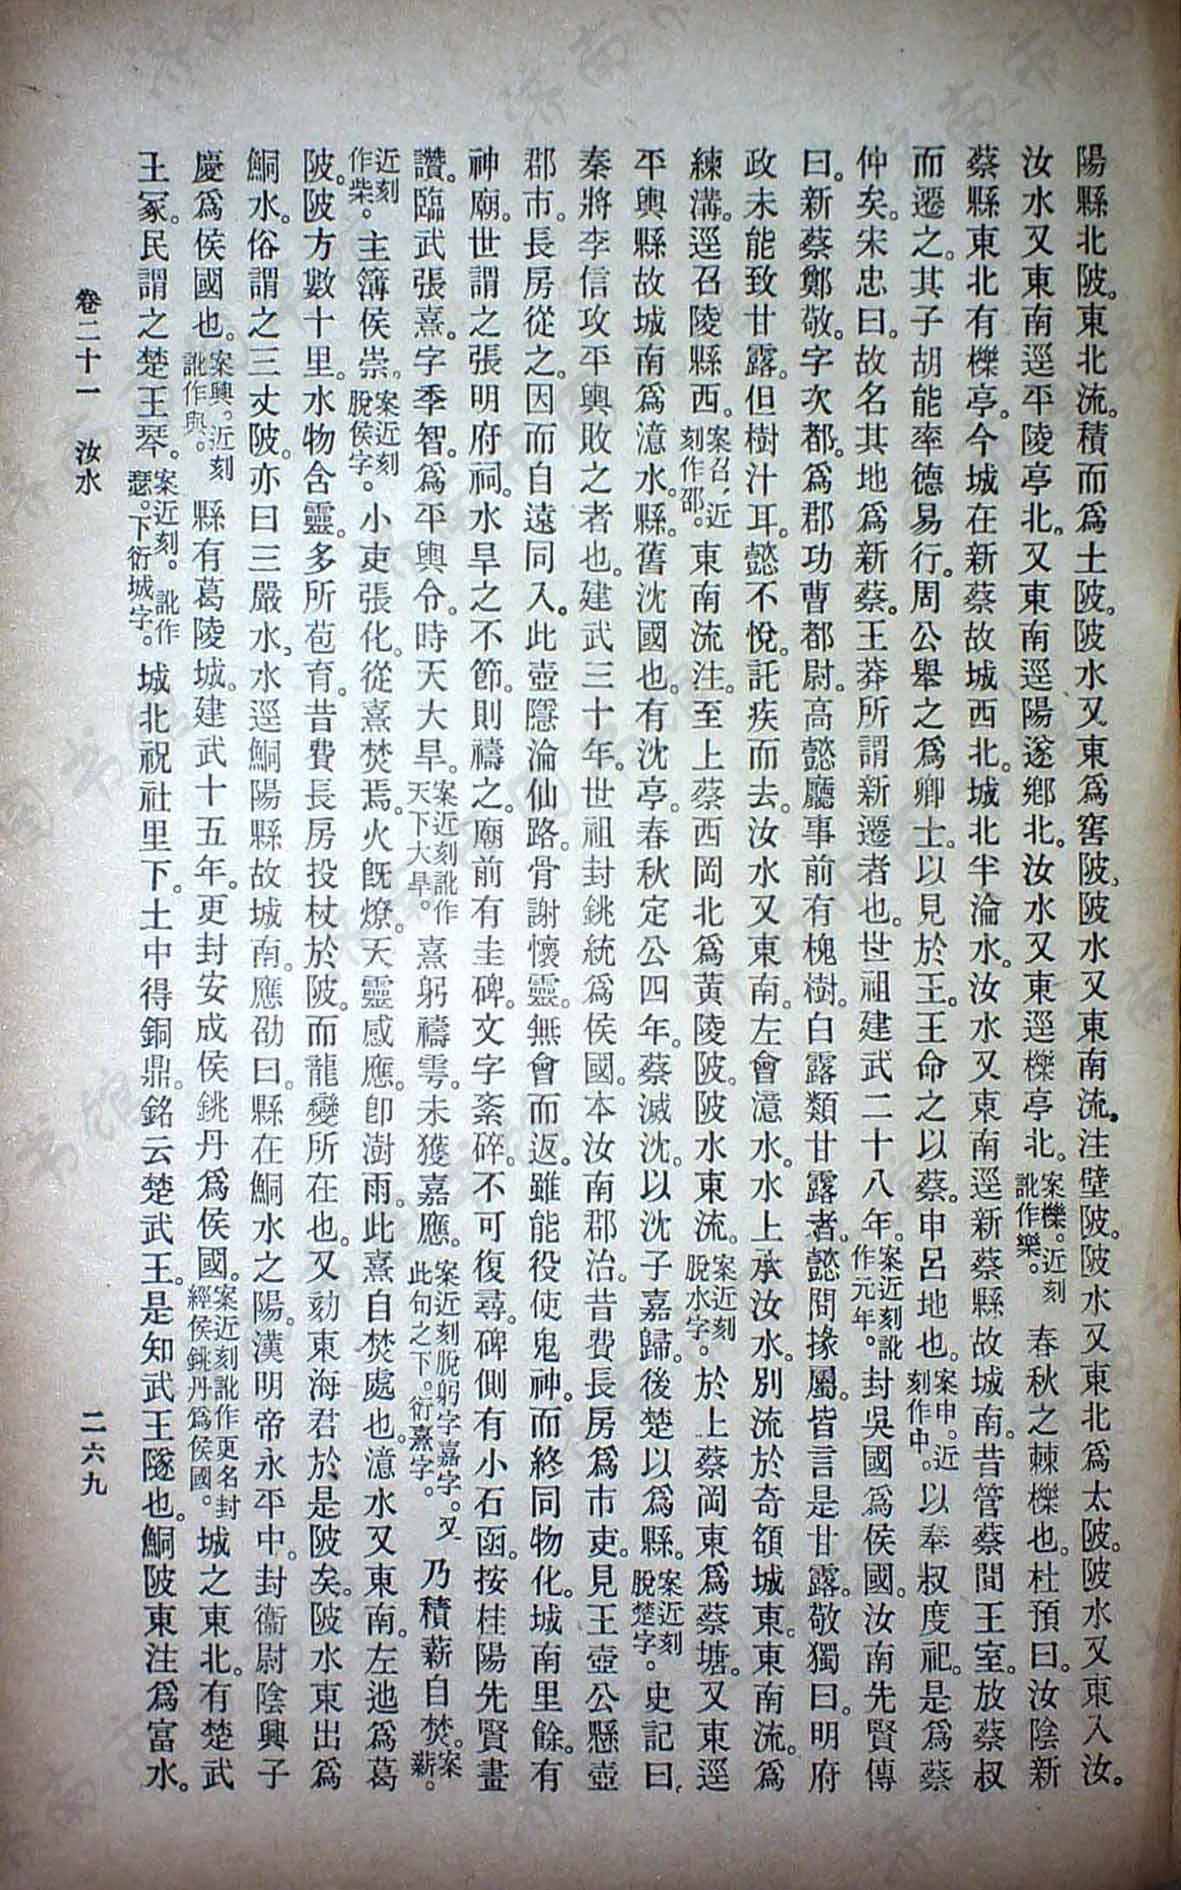 陽縣北陂。東北流。積而爲土陂。陂水又東爲窖陂、陂水又東南流。注壁陂。陂水又東北爲太陂。陂水又東入汝。
汝水又東南逕平陵亭北。又東南逕陽遂鄉北。汝水又東逕櫟亭北。案櫟。近刻訛作樂。春秋之棘櫟也。杜預曰。汝陰新
蔡縣東北有櫟亭。今城在新蔡故城西北。城北半淪水。汝水又東南逕新蔡縣故城南。昔管蔡間王室。放蔡叔
而遷之。其子胡能率德易行。周公舉之爲卿士。以見於王。王命之以蔡。申呂地也。案申。近刻作中。以奉叔度祀。是爲蔡
仲矣。宋忠曰。故名其地爲新蔡。王莽所謂新遷者也。世祖建武二十八年。案近刻訛作元年。封吳國爲侯國。汝南先賢傳
曰。新蔡鄭敬。字次都。爲郡功曹都尉。高懿廳事前有槐樹。白露類甘露者。懿問掾屬。皆言是甘露。敬獨曰。明府
政未能致甘露。但樹汁耳。懿不悅。託疾而去。汝水又東南。左會澺水。水上承汝水。別流於奇頟城東。東南流。爲
練溝。逕召陵縣西。案召、近刻作邵。東南流注。至上蔡西岡北爲黃陵陂。陂水東流。案近刻脫水字。於上蔡岡東爲蔡塘。又東逕
平輿縣故城南爲澺水。縣。舊沈國也。有沈亭。春秋定公四年。蔡滅沈。以沈子嘉歸。後楚以爲縣。案近刻脫楚字。史記曰、
秦將李信攻平輿敗之者也。建武三十年。世祖封銚統爲侯國。本汝南郡治。昔費長房爲市吏。見王壺公懸壺
郡市。長房從之。因而自遠同入。此壺隱淪仙路。骨謝懷靈。無會而返。雖能役使鬼神。而終同物化。城南里餘。有
神廟。世謂之張明府祠。水旱之不節。則禱之。廟前有圭碑。文字紊碎。不可復尋。碑側有小石函。按桂陽先賢畫
讚。臨武張熹。字季智。爲平輿令。時天大旱。案近刻訛作天下大旱。熹躬禱雩。未獲嘉應。案近刻脫躬字嘉字。又此句之下。衍熹字。乃積薪自焚。案薪。
近刻作柴。主簿侯崇。案近刻脫侯字。小吏張化。從熹焚焉。火旣燎。天靈感應。卽澍雨。此熹自焚處也。澺水又東南。左迆爲葛
陂。陂方數十里。水物含靈。多所苞育。昔費長房投杖於陂。而龍變所在也。又劾東海君於是陂矣。陂水東出爲
鮦水。俗謂之三丈陂。亦曰三嚴水、水逕鮦陽縣故城南。應劭曰。縣在鮦水之陽。漢明帝永平中。封衞尉陰興子
慶爲侯國也。案興。近刻訛作與。縣有葛陵城。建武十五年。更封安成侯銚丹爲侯國。案近刻訛作更名封經侯銚丹爲侯國。城之東北。有楚武
王冢。民謂之楚王琴。案近刻。訛作瑟。下衍城字。城北祝社里下。土中得銅鼎。銘云楚武王。是知武王隧也。鮦陂東注爲富水。
卷二十一 汝水 二六九